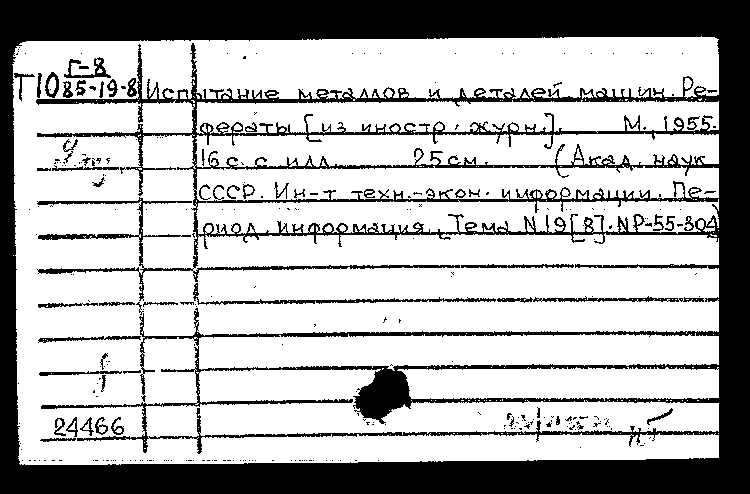 Г-8
Т10 85-19-8 Испытание металлов и деталей машин. Ре-
фераты [из иностр. журн.]. М., 1955.
16 с. с илл. 25 см. (Акад. наук
СССР. Ин-т техн.-экон. информации. Пе-
риод. информация. Тема N 19[8]. NР-55-304)
24466